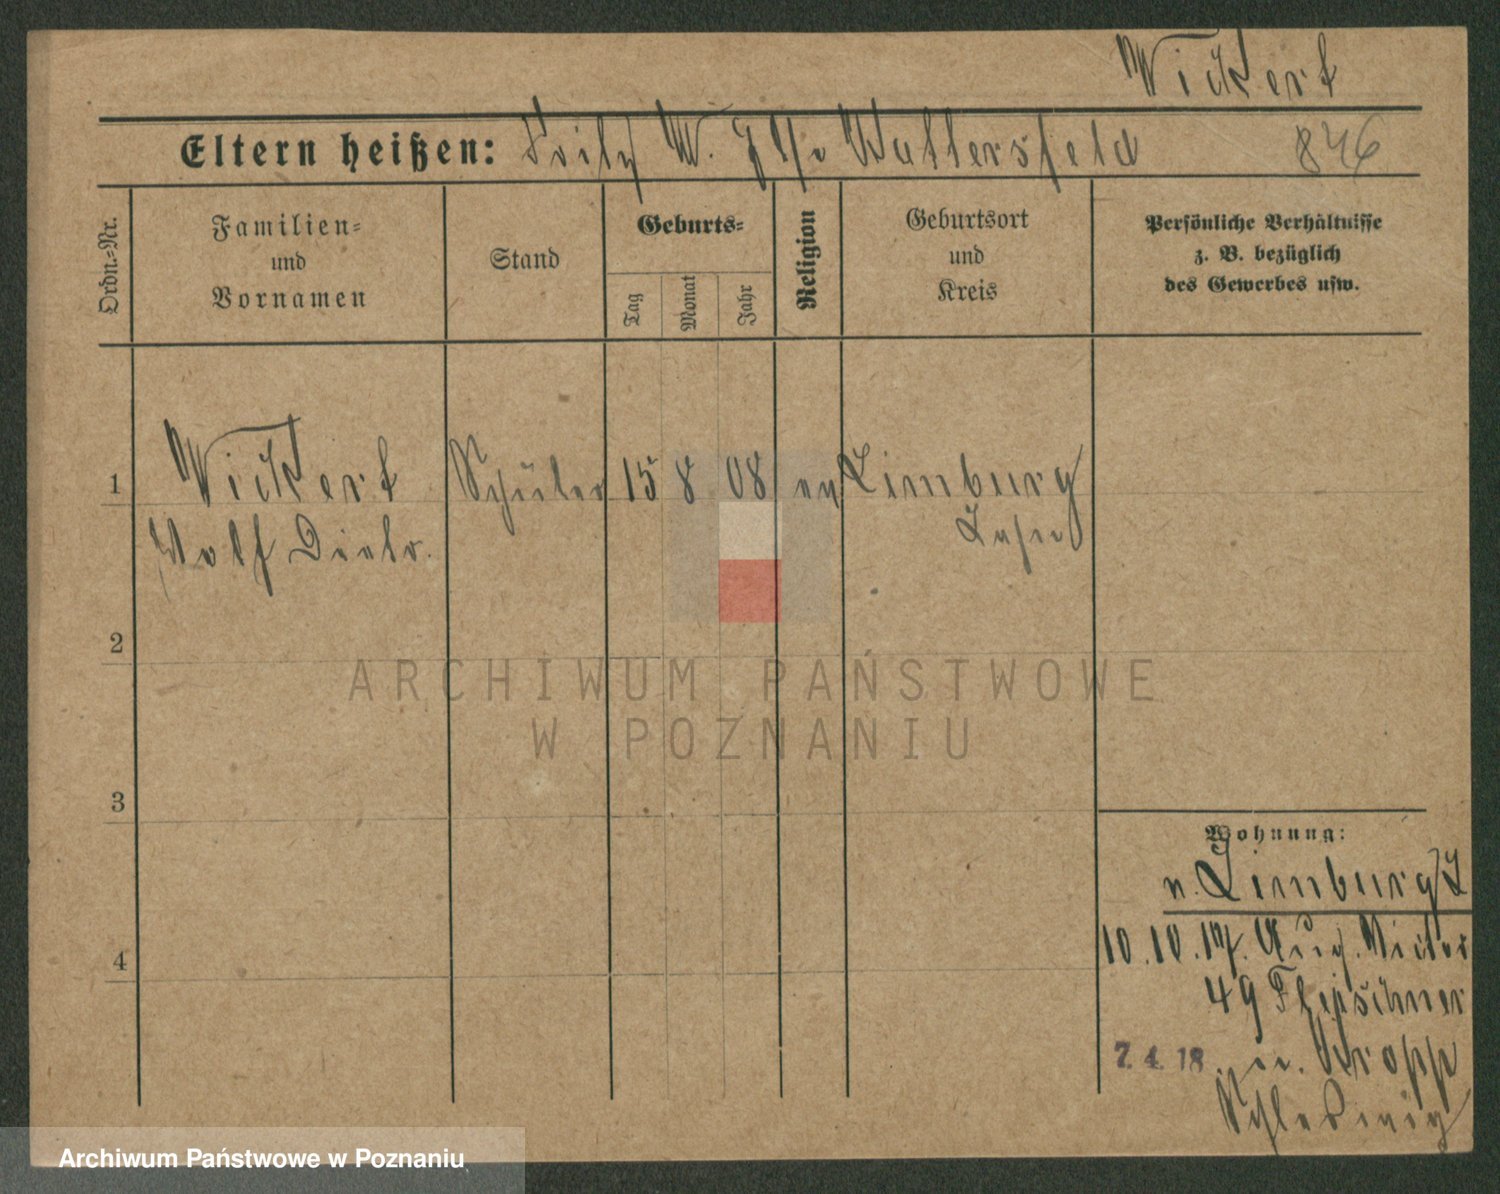 Wickert
Eltern heißen: Fritz W. Wattersfeld 846
Ordn.-Nr.
Familien=
und
Vornamen
Stand
Geburts=
Tag
Monat
Jahr
Religion
Geburtsort
und
Kreis
Persönliche Verhältnisse
z. B. bezüglich
des Gewerbes usw.
1 Wickert Schüler 15 8 08 ev Limburg
Wolf Dietr. Lahn
2
ARCHIWUM PAŃSTWOWE
W POZNANIU
3
Wohnung:
n. Limburg/L
4
10.10.17. Aug. Victor
49 Fleischner
7. 4. 18 n. Kropp
Schleswig
Archiwum Państwowe w Poznaniu